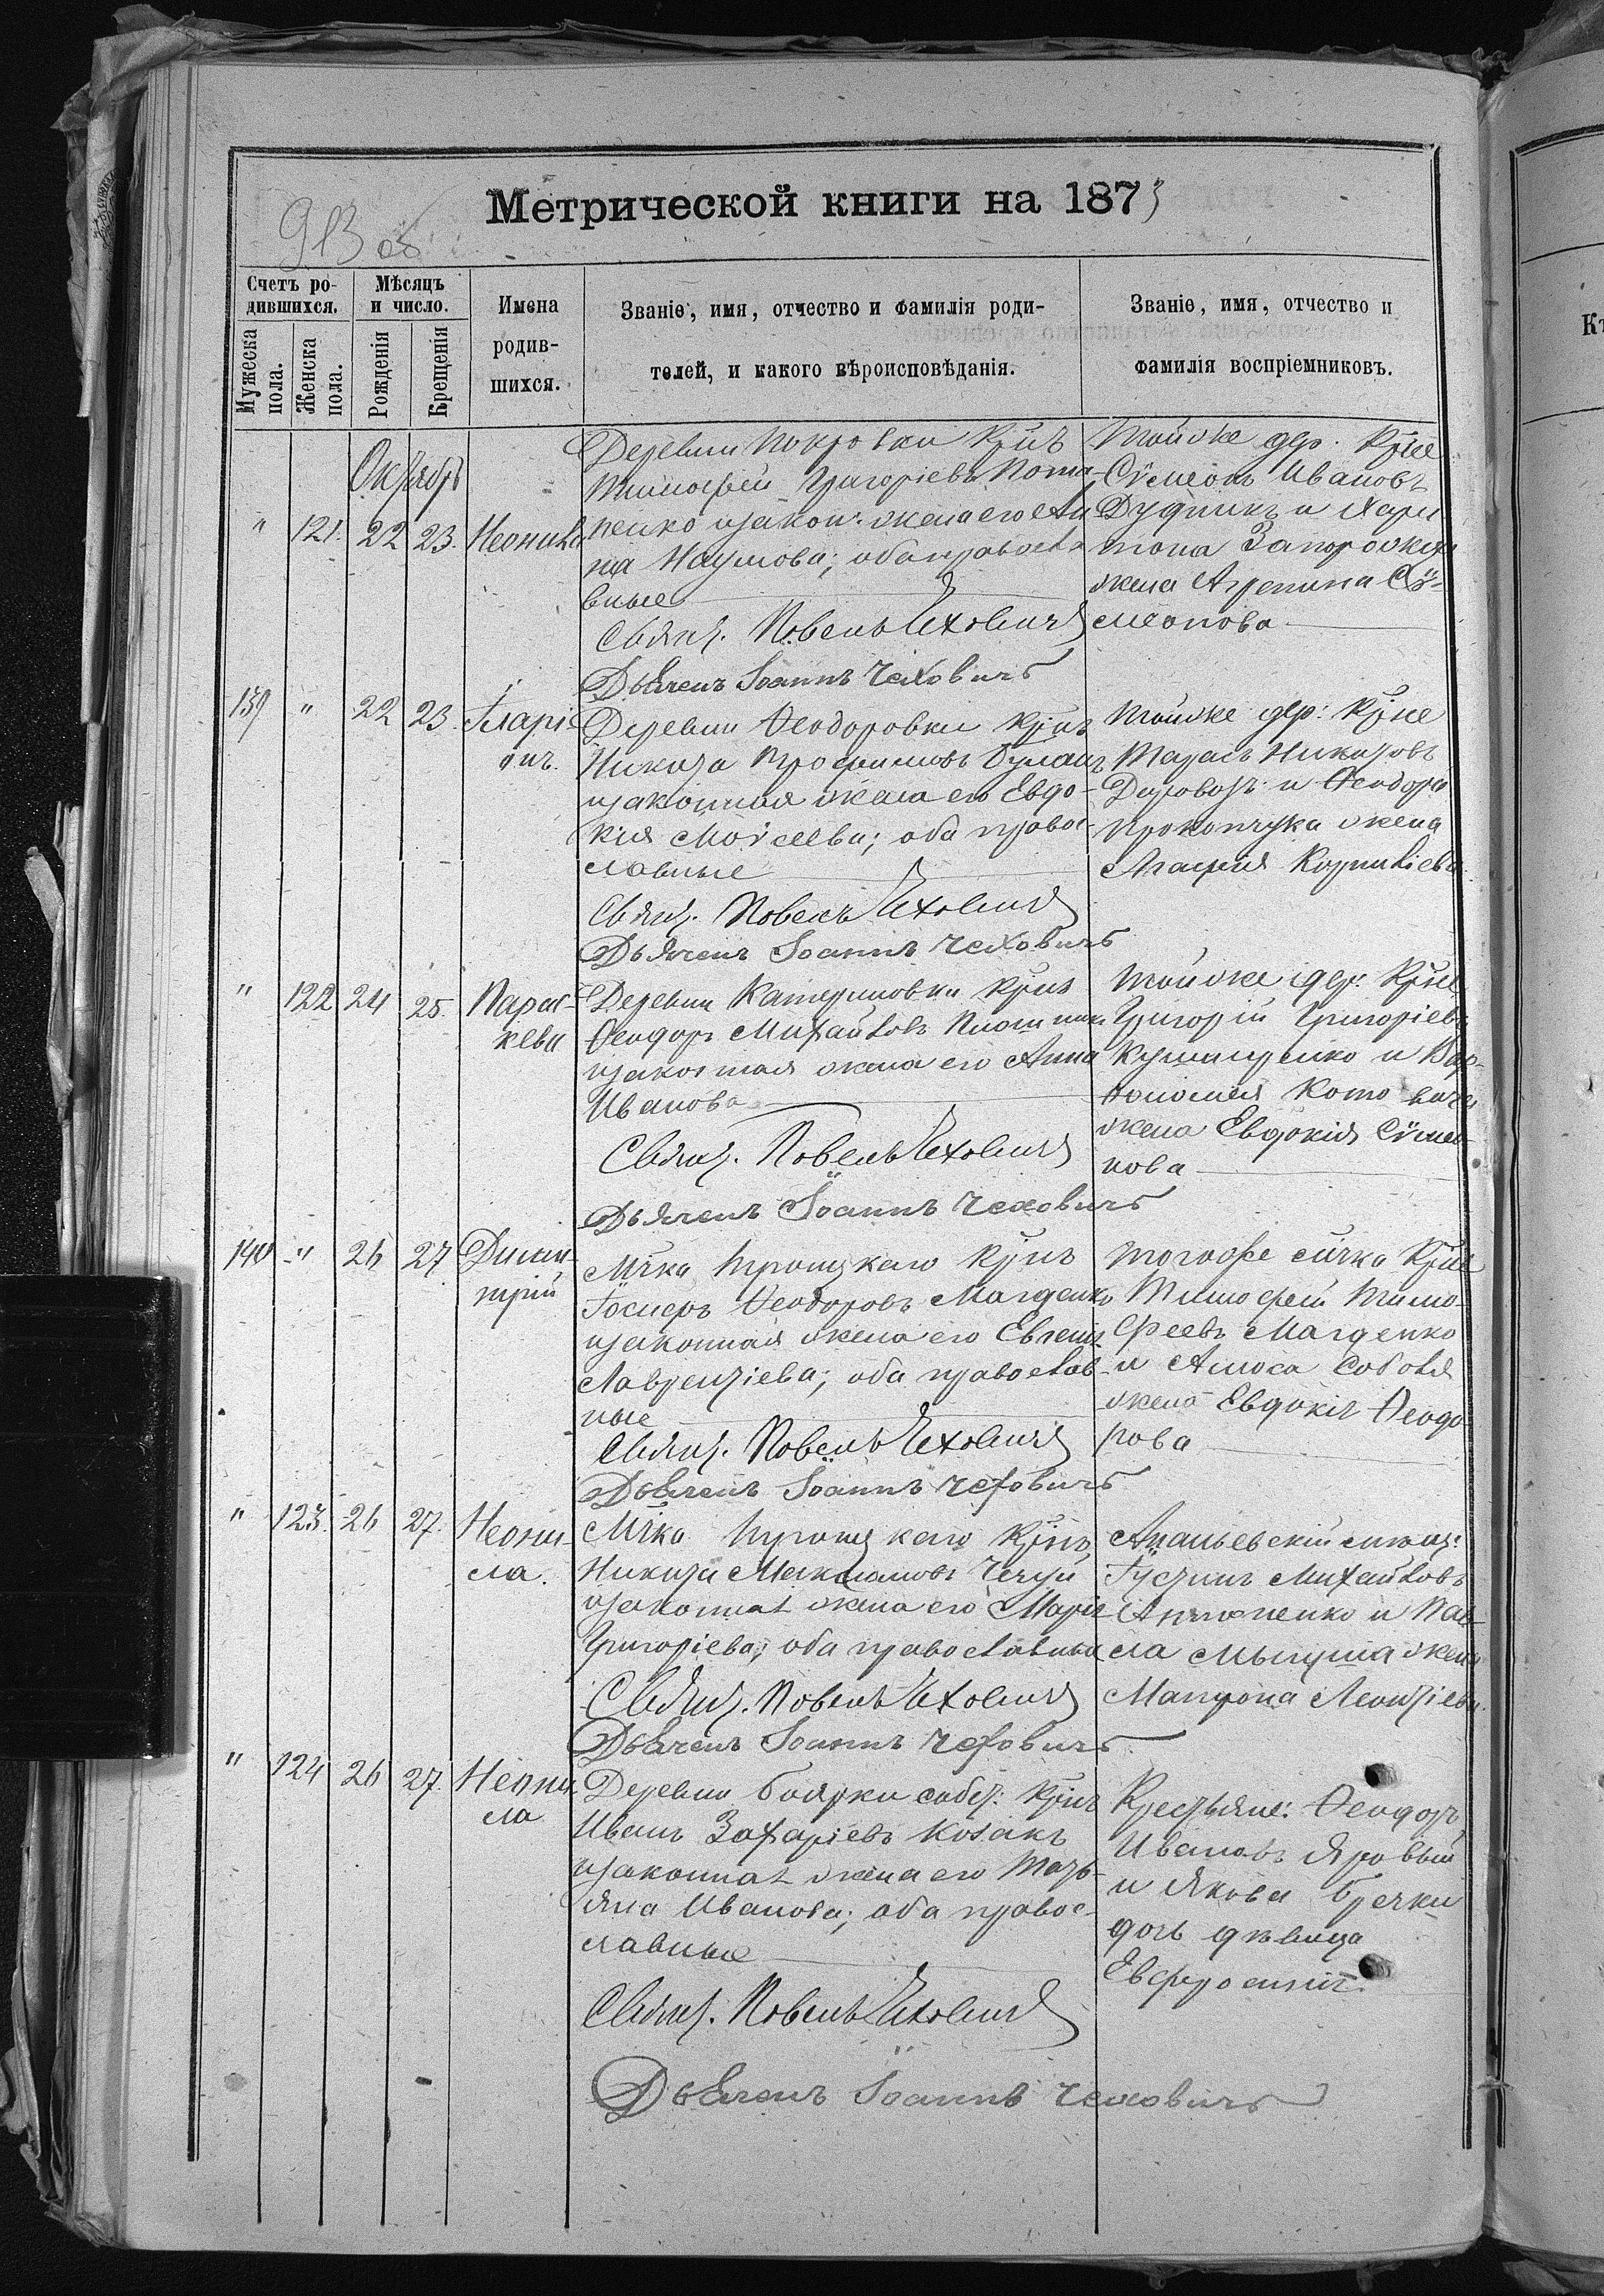 Метрической книги на 1873
913 об
Счетъ ро-
дившихся.
Мѣсяцъ
и число.
Мужеска
пола.
Женска
пола.
Рожденія
Крещенія
Имена
родив-
шихся.
Званіе, имя, отчество и фамилія роди-
телей, и какого вѣроисповѣданія.
Званіе, имя, отчество и
фамилія воспріемниковъ.
Октябрь
" 121. 22 23. Неонила
Деревни Покровки Крнъ
Тимофей Григоріевъ Пота-
пенко и закон. жена его Ан
на Наумова; оба правосла
вные
Свящ. Повелъ Чеховичъ
Дьяченъ Іоаннъ Чеховичъ
Тойже дер. Крне
Сѵмеонъ Ивановъ
Дудникъ и Хари
тона Запорожца
жена Агрепина Сѵ-
меонова
139 " 22 23. Іларі
онъ.
Деревни Ѳеодоровки Крнъ
Никита Трофимовъ
и законная жена его Евдо-
кія Моѵсеева; оба правос-
лавные
Свящ. Повелъ Чеховичъ
Дьяченъ Іоаннъ Чеховичъ
Тойже дер: Крне
Тарасъ Никитовъ
и Ѳеодора
Прокопчука жена
Агафія Корниліева
" 122 24 25. Парас-
кева
Деревни Катериновки Крнъ
Ѳеодоръ Михайловъ
и законная жена его Анна
Иванова
Свящ. Повелъ Чеховичъ
Дьяченъ Іоаннъ Чеховичъ
Тойже дер. Крне
Григорій Григоріевъ
Кушниренко и Вар-
ѳоломея
жена Евдокія Сѵмео-
нова
140 " 26 27 Дими-
трій
Мѣчка Троицкаго Крнъ
Іосифъ Ѳеодоровъ Магденко
и законная жена его Евгенія
Лаврентіева; оба православ-
ные
Свящ. Повелъ Чеховичъ
Дьяченъ Іоаннъ Чеховичъ
Тогоже мѣчка Крне
Тимофей Тимо-
феевъ Магденко
и Амоса Соболя
жена Евдокія Ѳеодо
рова
" 123. 26 27. Неони-
ла.
Мѣчка Троицкаго Крнъ
Никита Максимовъ Чечуй
и законная жена его Марія
Григоріева; оба православные
Свящ. Повелъ Чеховичъ
Дьяченъ Іоаннъ Чеховичъ
Ананьевскій мѣщ:
Іустинъ Михайловъ
и Пав-
ла жена
Матрона Леонтіева.
" 124 26 27. Неони
ла
Деревни Боярки собст: Крнъ
Иванъ Захаріевъ Козакъ
и законная жена его Тать-
яна Иванова; оба правос-
лавные
Свящ. Повелъ Чеховичъ
Дьяченъ Іоаннъ Чеховичъ
Крестьяне: Ѳеодоръ
Ивановъ Яровый
и Якова Гречки
дочь дѣвица
Евфросинія.